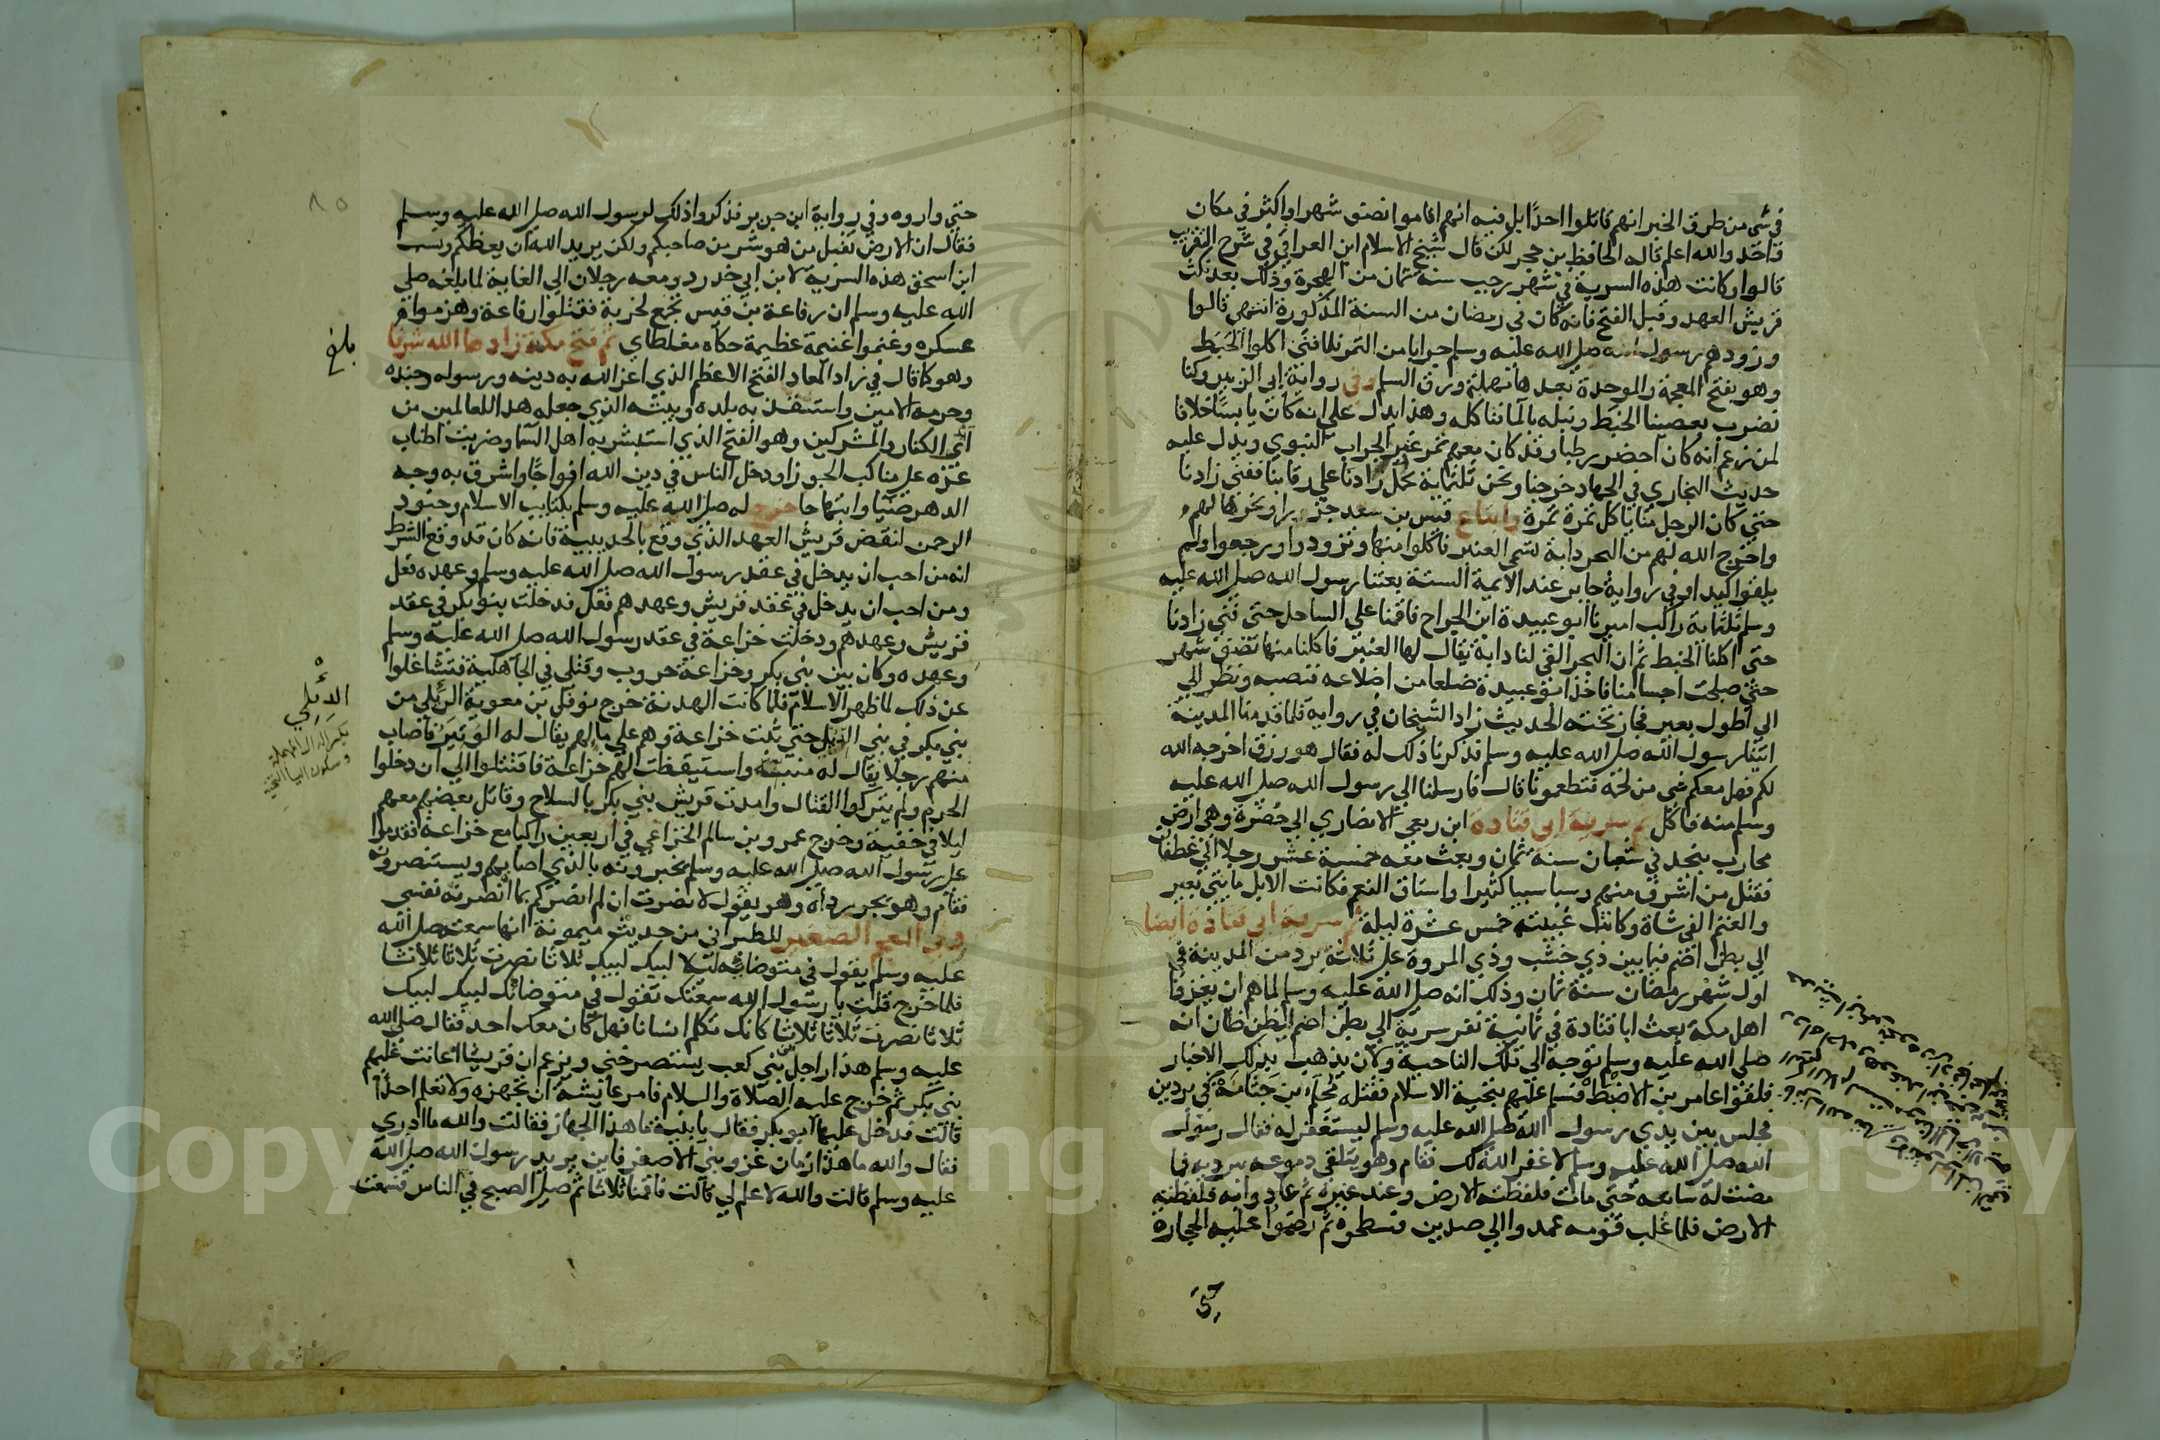 في شي من طرق الخبر انهم قاتلوا احدا بل فيه انهم اقاموا نصف شهرا واكثر في مكان
واحد والله اعلم قاله الحافظ بن حجر لكن قال شيخ الاسلام ابن العراقي في شرح التقريب
قالوا وكانت هذه السرية في شهر رجب سنة ثمان من الهجرة وذلك بعد نكث
قريش العهد وقبل الفتح فانه كان في رمضان من السنة المذكورة انتهى قالوا
وزودهم رسول الله صلى الله عليه وسلم جرابا من التمر فلما فني اكلوا الخبط
وهو بفتح المعجمة والموحدة بعدها مهملة ورق السلم وفي رواية ابى الزبير وكنا
نضرب بعصينا الخبط ونبله بالماء فناكله وهذا يدل على انه كان يابسا خلافا
لمن زعم انه كان اخضر رطبا وقد كان معهم تمر غير الجراب النبوي ويدل عليه
حديث البخاري في الجهاد خرجنا ونحن ثلثماية نحمل زادنا على رقابنا ففني زادنا
حتى كان الرجل منا ياكل تمرة تمرة وابتاع قيس بن سعد جزورا ونحرها لهم
واخرج الله لهم من البحر دابة تسمى العنبر فاكلوا منها وتزودوا ورجعوا ولم
يلقوا كيدا وفي رواية جابر عند الايمة الستة بعثنا رسول الله صلى الله عليه
وسلم ثلثماية راكب اميرنا ابو عبيدة ابن الجراح فاقمنا على الساحل حتى فني زادنا
حتى اكلنا الخبط ثم ان البحر القى لنا دابة يقال لها العنبر فاكلنا منها نصف شهر
حتى صلحت اجسامنا فاخذ ابو عبيدة ضلعا من اضلاعه فنصبه ونظر الى
الى اطول بعير فجاز تحته الحديث زاد الشيخان في رواية فلما قدمنا المدينة
اتينا رسول الله صلى الله عليه وسلم فذكرنا ذلك له فقال هو رزق اخرجه الله
لكم فهل معكم شي من لحمه فتطعمونا قال فارسلنا الى رسول الله صلى الله عليه
وسلم منه فاكل ثم سرية ابى قتادة ابن ربعي الانصاري الى خضرة وهي ارض
محارب بنجد في شعبان سنة ثمان وبعث معه خمسة عشر رجلا الى غطفان
فقتل من اشرف منهم وسبا سبيا كثيرا واستاق النعم فكانت الابل مايتي بعير
والغنم الفي شاة وكانت غيبته خمس عشرة ليلة ثم سرية ابى قتادة ايضا
الى بطن اضم فيما بين ذي خشب وذي المروة على ثلاثة برد من المدينة في
اول شهر رمضان سنة ثمان وذلك انه صلى الله عليه وسلم لما هم ان يغزوا
اهل مكة بعث ابا قتادة في ثمانية نفر سرية الى بطن اضم ليظن ظان انه
صلى الله عليه وسلم توجه الى تلك الناحية ولان يذهب بذلك الاخبار
فلقوا عامر بن الاضبط فسلم عليهم بتحية الاسلام فقتله محلم بن جثامة في بردين
فجلس بين يدي رسول الله صلى الله عليه وسلم ليستغفر له فقال رسول
الله صلى الله عليه وسلم لا غفر الله لك فقام وهو يتلقى دموعه ببرديه فما
مضت له سابعه حتى مات فلفظته الارض وعند غيره ثم عاد وانه فلفظته
الارض فلما غلب قومه عمدوا الى صدين فسطحوه ثم رضموا عليه الحجارة
حتى
حتى واروه وفي رواية ابن جرير فذكروا ذلك لرسول الله صلى الله عليه وسلم
فقال ان الارض تقبل من هو شر من صاحبكم ولكن يريد الله ان يعظكم ونسب
ابن اسحق هذه السرية لابن ابي حدرد ومعه رجلان الى الغابة لما بلغه صلى
الله عليه وسلم ان رفاعة بن قيس تجمع لحربه فقتلوا رفاعة وهزموا
عسكره وغنموا غنيمة عظيمة حكاه مغلطاي ثم فتح مكة زادها الله شرفا
وهو كما قال في زاد المعاد الفتح الاعظم الذي اعز الله به دينه ورسوله وجنده
وحرمه الامين واستنقذ به بلده وبيته الذي جعله هدا للعالمين من
ايدي الكفار والمشركين وهو الفتح الذي استبشر به اهل السما وضربت اطناب
عزه على مناكب الجوزا ودخل الناس في دين الله افواجا واشرق به وجه
الدهر ضيا وابتهاجا خرج له صلى الله عليه وسلم بكتايب الاسلام وجنود
الرحمن لنقض قريش العهد الذي وقع بالحديبية فانه كان قد وقع الشرط
انه من احب ان يدخل في عقد رسول الله صلى الله عليه وسلم وعهده فعل
ومن احب ان يدخل في عقد قريش وعهدهم فعل فدخلت بنو بكر في عقد
قريش وعهدهم ودخلت خزاعة في عقد رسول الله صلى الله عليه وسلم
وعهده وكان بين بني بكر وخزاعة حروب وقتلى في الجاهلية فتشاغلوا
عن ذلك لما ظهر الاسلام فلما كانت الهدنة خرج نوفل بن معوية الديلي من
بني بكر في بني الديل حتى بيت خزاعة وهم على ما لهم يقال له الوتير فاصاب
منهم رجلا يقال له منبه واستيقظت لهم خزاعة فاقتتلوا الى ان دخلوا
الحرم ولم يتركوا القتال وامدت قريش بني بكر بالسلاح وقاتل بعضهم معهم
ليلا في خفية وخرج عمرو بن سالم الخزاعي في اربعين راكبا مع خزاعة فقدموا
على رسول الله صلى الله عليه وسلم يخبرونه بالذي اصابهم ويستنصرونه
فقام وهو يجر رداه وهو يقول لا نصرت ان لم انصركم بما انصر به نفسي
وفي المعجم الصغير للطبراني من حديث ميمونة انها سمعته صلى الله
عليه وسلم يقول في متوضاه ليلا لبيك لبيك ثلاثا نصرت ثلاثا ثلاثا
فلما خرج قلت يا رسول الله سمعتك تقول في متوضاتك لبيك لبيك
ثلاثا نصرت ثلاثا ثلاثا كانك تكلم انسانا فهل كان معك احد فقال صلى الله
عليه وسلم هذا راجز بني كعب يستصرخني ويزعم ان قريشا اعانت عليهم
بني بكر ثم خرج عليه الصلاة والسلام فامر عايشة ان تجهزه ولا تعلم احدا
قالت فدخل عليها ابو بكر فقال يا بنية ما هذا الجهاز فقالت والله ما ادري
فقال والله ما هذا زمان غزو بني الاصفر فاين يريد رسول الله صلى الله
عليه وسلم قالت والله لا علم لي قالت فاقمنا ثلاثا ثم صلى الصبح في الناس فسمعت
بلغ
الدئلي
بكسر الدال المهملة
وسكون اليا التحتية
٨٥
Copyright © King Saud University